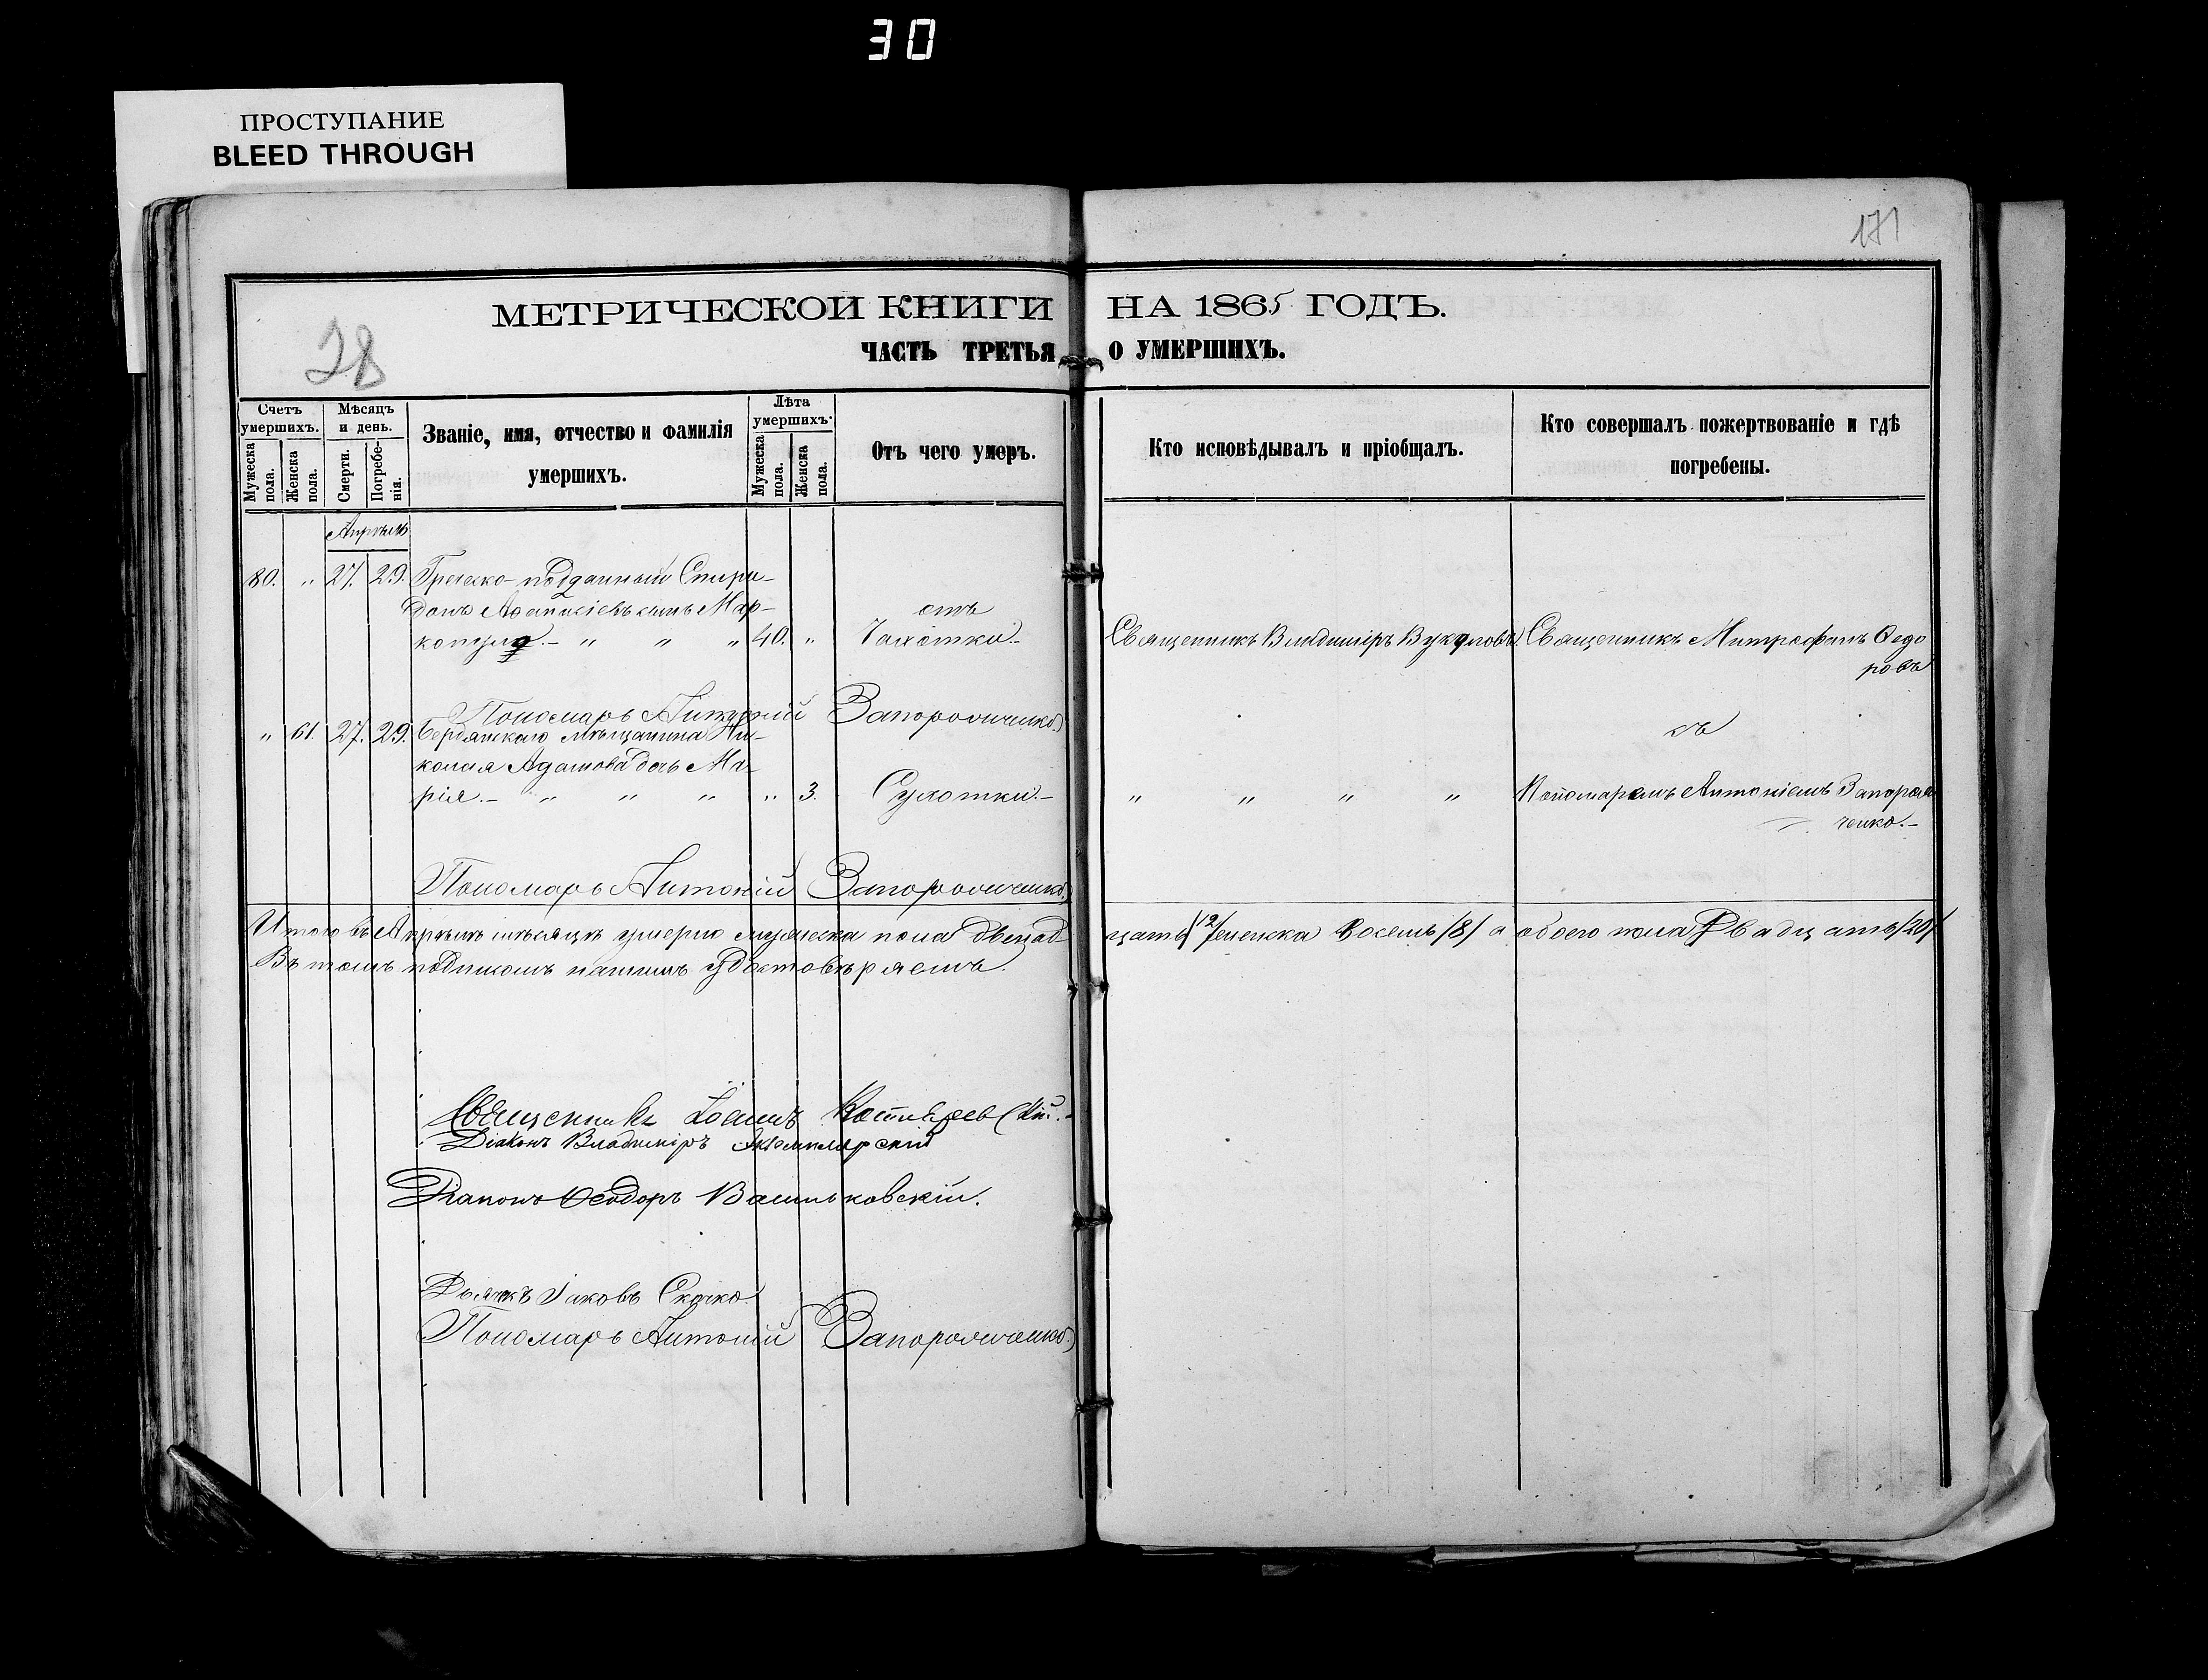 30
ПРОСТУПАНИЕ
BLEED THROUGH
171
МЕТРИЧЕСКОИ КНИГИ НА 1865 ГОДЪ.
28
ЧАСТЬ ТРЕТЬЯ О УМЕРШИХЪ.
Счетъ умершихъ.
Мужеска пола.
Женска пола.
Мѣсяцъ и день.
Смерти.
Погребе-
нія.
Званіе, имя, отчество и фамилія
умершихъ.
Лѣта умершихъ.
Мужеска пола.
Женска пола.
Отъ чего умеръ.
Кто исповѣдывалъ и пріобщалъ.
Кто совершалъ пожертвованіе и гдѣ
погребены.
Апрѣль
80. „ 27. 29. Греческо-подданный Спири-
донъ Аѳанасіевъ сынъ Мар-
„ „ „ 40. „
отъ
Чахотки.-
Священникъ Владиміръ Вукуловъ.
Священникъ Митрофанъ Ѳедо
ровъ
Пономарь Антоній Запорожченко
„ 61. 27. 29. Бердянскаго мѣщанина Ни-
колая Адамова дочь Ма-
рія.- „ „ „ „ 3. Сухотки.-
„ „ „ „
съ
Пономаремъ Антоніемъ Запорож
ченко.-
Пономарь Антоній Запорожченко
Итого въ Апрѣлѣ мѣсяцѣ умерло мужеска пола двенад
цать /12/ женска восемь /8/ а обоего пола двадцать /20/
Въ томъ подписомъ нашимъ удостовѣряемъ.
Священникъ Іоаннъ
Діаконъ Владиміръ
Діаконъ Ѳеодоръ Васильковскій.
Дьячекъ Іаковъ
Пономарь Антоній Запорожченко